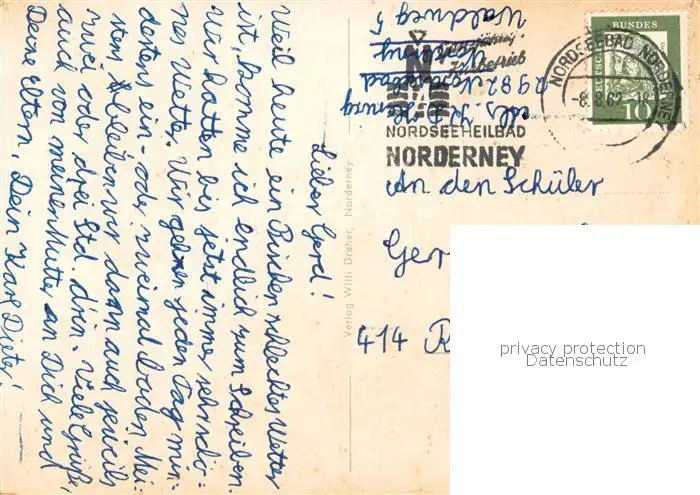 Lieber Gerd!
Weil heute ein bischen schlechtes Wetter
ist, komme ich endlich zum Schreiben.
Wir hatten bis jetzt immer sehr schö-
nes Wetter. Wir gehen jeden Tag min-
destens ein- oder zweimal baden. Mei-
stens bleiben wir dann auch jeweils
zwei oder drei Std. drin. Viele Grüße,
auch von meiner Mutter an Dich und
Deine Eltern, Dein Karl Dieter
Verlag Willi Draher, Norderney
Norderney
Waldweg 5
N
NORDSEEHEILBAD
NORDERNEY
NORDSEEBAD NORDERNEY
-8.8.62
BUNDES
DEUTSCHE
10
An den Schüler
Ger
414 R
privacy protection
Datenschutz